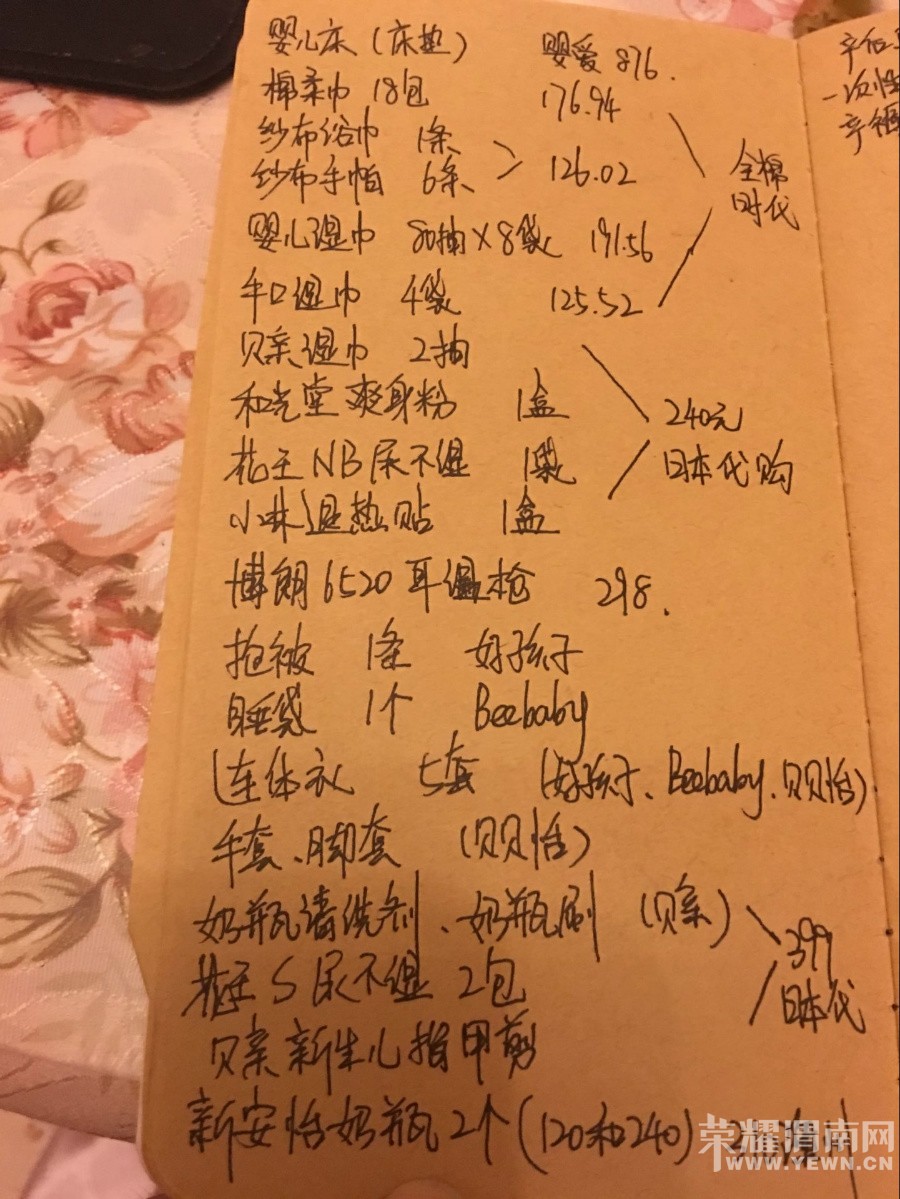 婴儿床（床垫） 婴爱 876.
棉柔巾 18包 176.94
纱布浴巾 1条
纱布手帕 6条 126.02
全棉
时代
婴儿湿巾 80抽×8袋 191.56
手口湿巾 4袋 125.52
贝亲湿巾 2抽
和光堂 爽身粉 1盒
240元
花王NB尿不湿 1袋
日本代购
小林退热贴 1盒
博朗6520耳温枪 298.
抱被 1条 好孩子
睡袋 1个 Beebaby
连体衣 5套 （好孩子、Beebaby、贝贝怡）
手套、脚套 （贝贝怡）
奶瓶清洗剂、奶瓶刷 （贝亲）
399
花王S尿不湿 2包
日本代
贝亲新生儿指甲剪
新安怡奶瓶2个（120和240）
一次性
荣耀渭南网
WWW.YEWN.CN